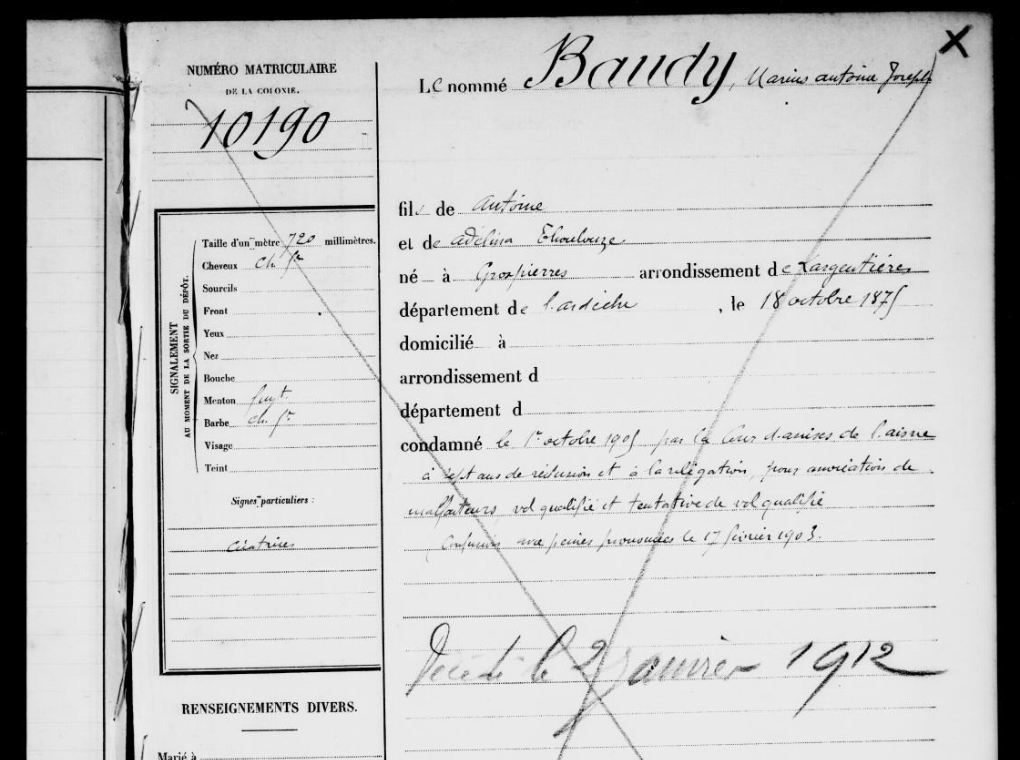 X
NUMÉRO MATRICULAIRE
DE LA COLONIE.
10190
Le nommé Baudy, Marius antoine Joseph
fils de antoine
et de adelina Thoulouze
né à Grospierres arrondissement de Largentière
département de l'ardèche, le 18 octobre 1875
domicilié à
arrondissement d
département d
condamné le 1er octobre 1905 par la Cour d'assises de l'aisne
à sept ans de réclusion et à la relégation, pour association de
malfaiteurs, vol qualifié et tentative de vol qualifié
Confusion avec peines prononcées le 17 février 1903.
Décédé le 2 janvier 1912
SIGNALEMENT
AU MOMENT DE LA SORTIE DU DÉPÔT.
Taille d'un mètre 720 millimètres.
Cheveux ch. fcé
Sourcils
Front
Yeux
Nez
Bouche
Menton
Barbe ch. fcé
Visage
Teint
Signes particuliers :
cicatrices
RENSEIGNEMENTS DIVERS.
Marié à